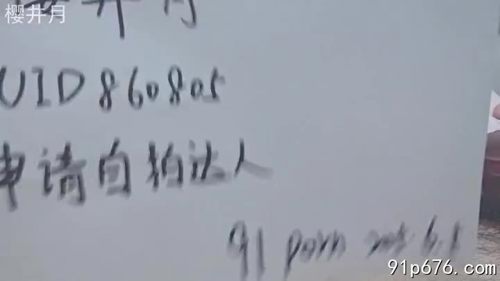 樱井月
井月
UID860805
申请自拍达人
91 porn
91p676.com